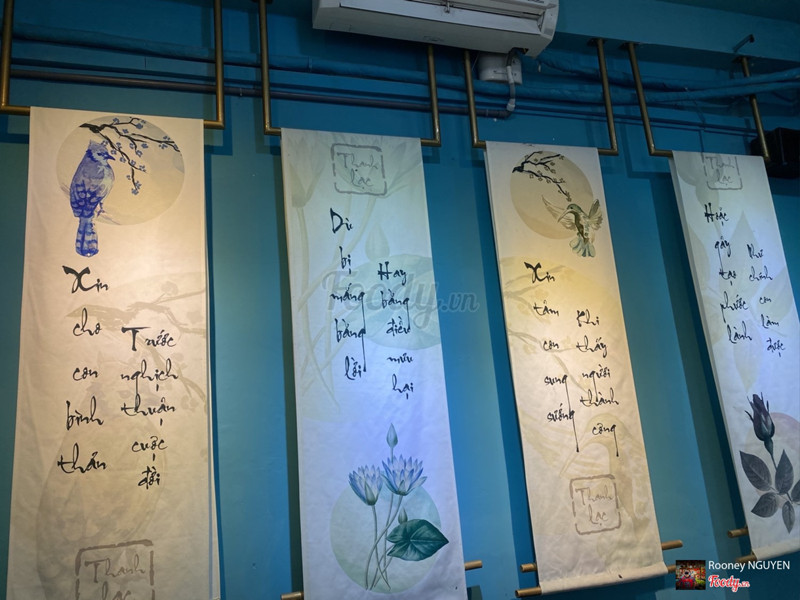 Xin cho con bình thản
Trước nghịch thuận cuộc đời
Thanh Lạc
Thanh Lạc
Dù bị mắng bằng lời
Hay bằng điều mưu hại
Xin tâm con sung sướng
Khi thấy người thành công
Thanh Lạc
Thanh Lạc
Hoặc gây tạo phước lành
Như chính con làm được
Foody.vn
Rooney NGUYEN
Foody.vn